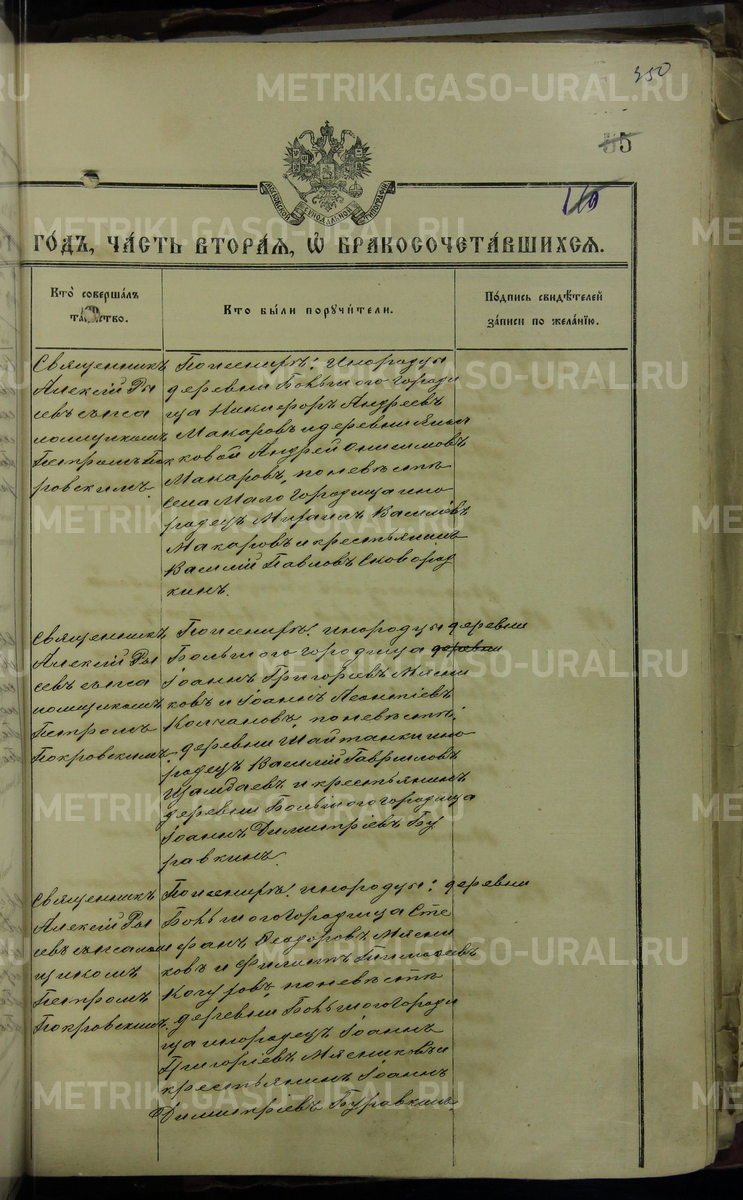 350
55
110
МОСКОВСКОЙ СѴНОДАЛЬНОЙ ТИПОГРАФІИ
ГОДЪ, ЧАСТЬ ВТОРАЯ, Ѡ БРАКОСОЧЕТАВШИХСЯ.
Кто совершалъ
таинство.
Кто были поручители.
Подпись свидѣтелей
записи по желанію.
Священникъ
Алексій Ры
севъ съ пса
ломщикомъ
Петромъ По
кровскимъ.
По женихѣ: инородцы
деревни Большого Городи
ща Никифоръ Андреевъ
Макаровъ и деревни
ковой Андрей Онисимовъ
Макаровъ, по невѣстѣ
Села Мало Городища ино
родецъ Михаилъ Василіевъ
Макаровъ и крестьянинъ
Василій Павловъ Сковород
кинъ.
Священникъ
Алексій Ры
севъ съ пса
ломщикомъ
Петромъ
Покровскимъ
По женихѣ: инородцы деревни
Большого городища деревни
Іоаннъ Григоріевъ Мясни
ковъ и Іоаннъ Леонтіевъ
Колчановъ, по невѣстѣ,
деревни Шайтанки ино
родецъ Василій Гавриловъ
Шамбаевъ и крестьянинъ
деревни Большого городища
Іоаннъ Димитріевъ Бу
равкинъ.
Священникъ
Алексій Ры
севъ съ псалом
щикомъ
Петромъ
Покровскимъ,
По женихѣ: инородцы: деревни
Большого городища Сте
фанъ Ѳеодоровъ Мясни
ковъ и Филиппъ Тимофеевъ
по невѣстѣ
деревни Большого Городи
ща инородецъ Іоаннъ
Григоріевъ Мясниковъ и
крестьянинъ Іоаннъ
Димитріевъ Буравкинъ.
METRIKI.GASO-URAL.RU